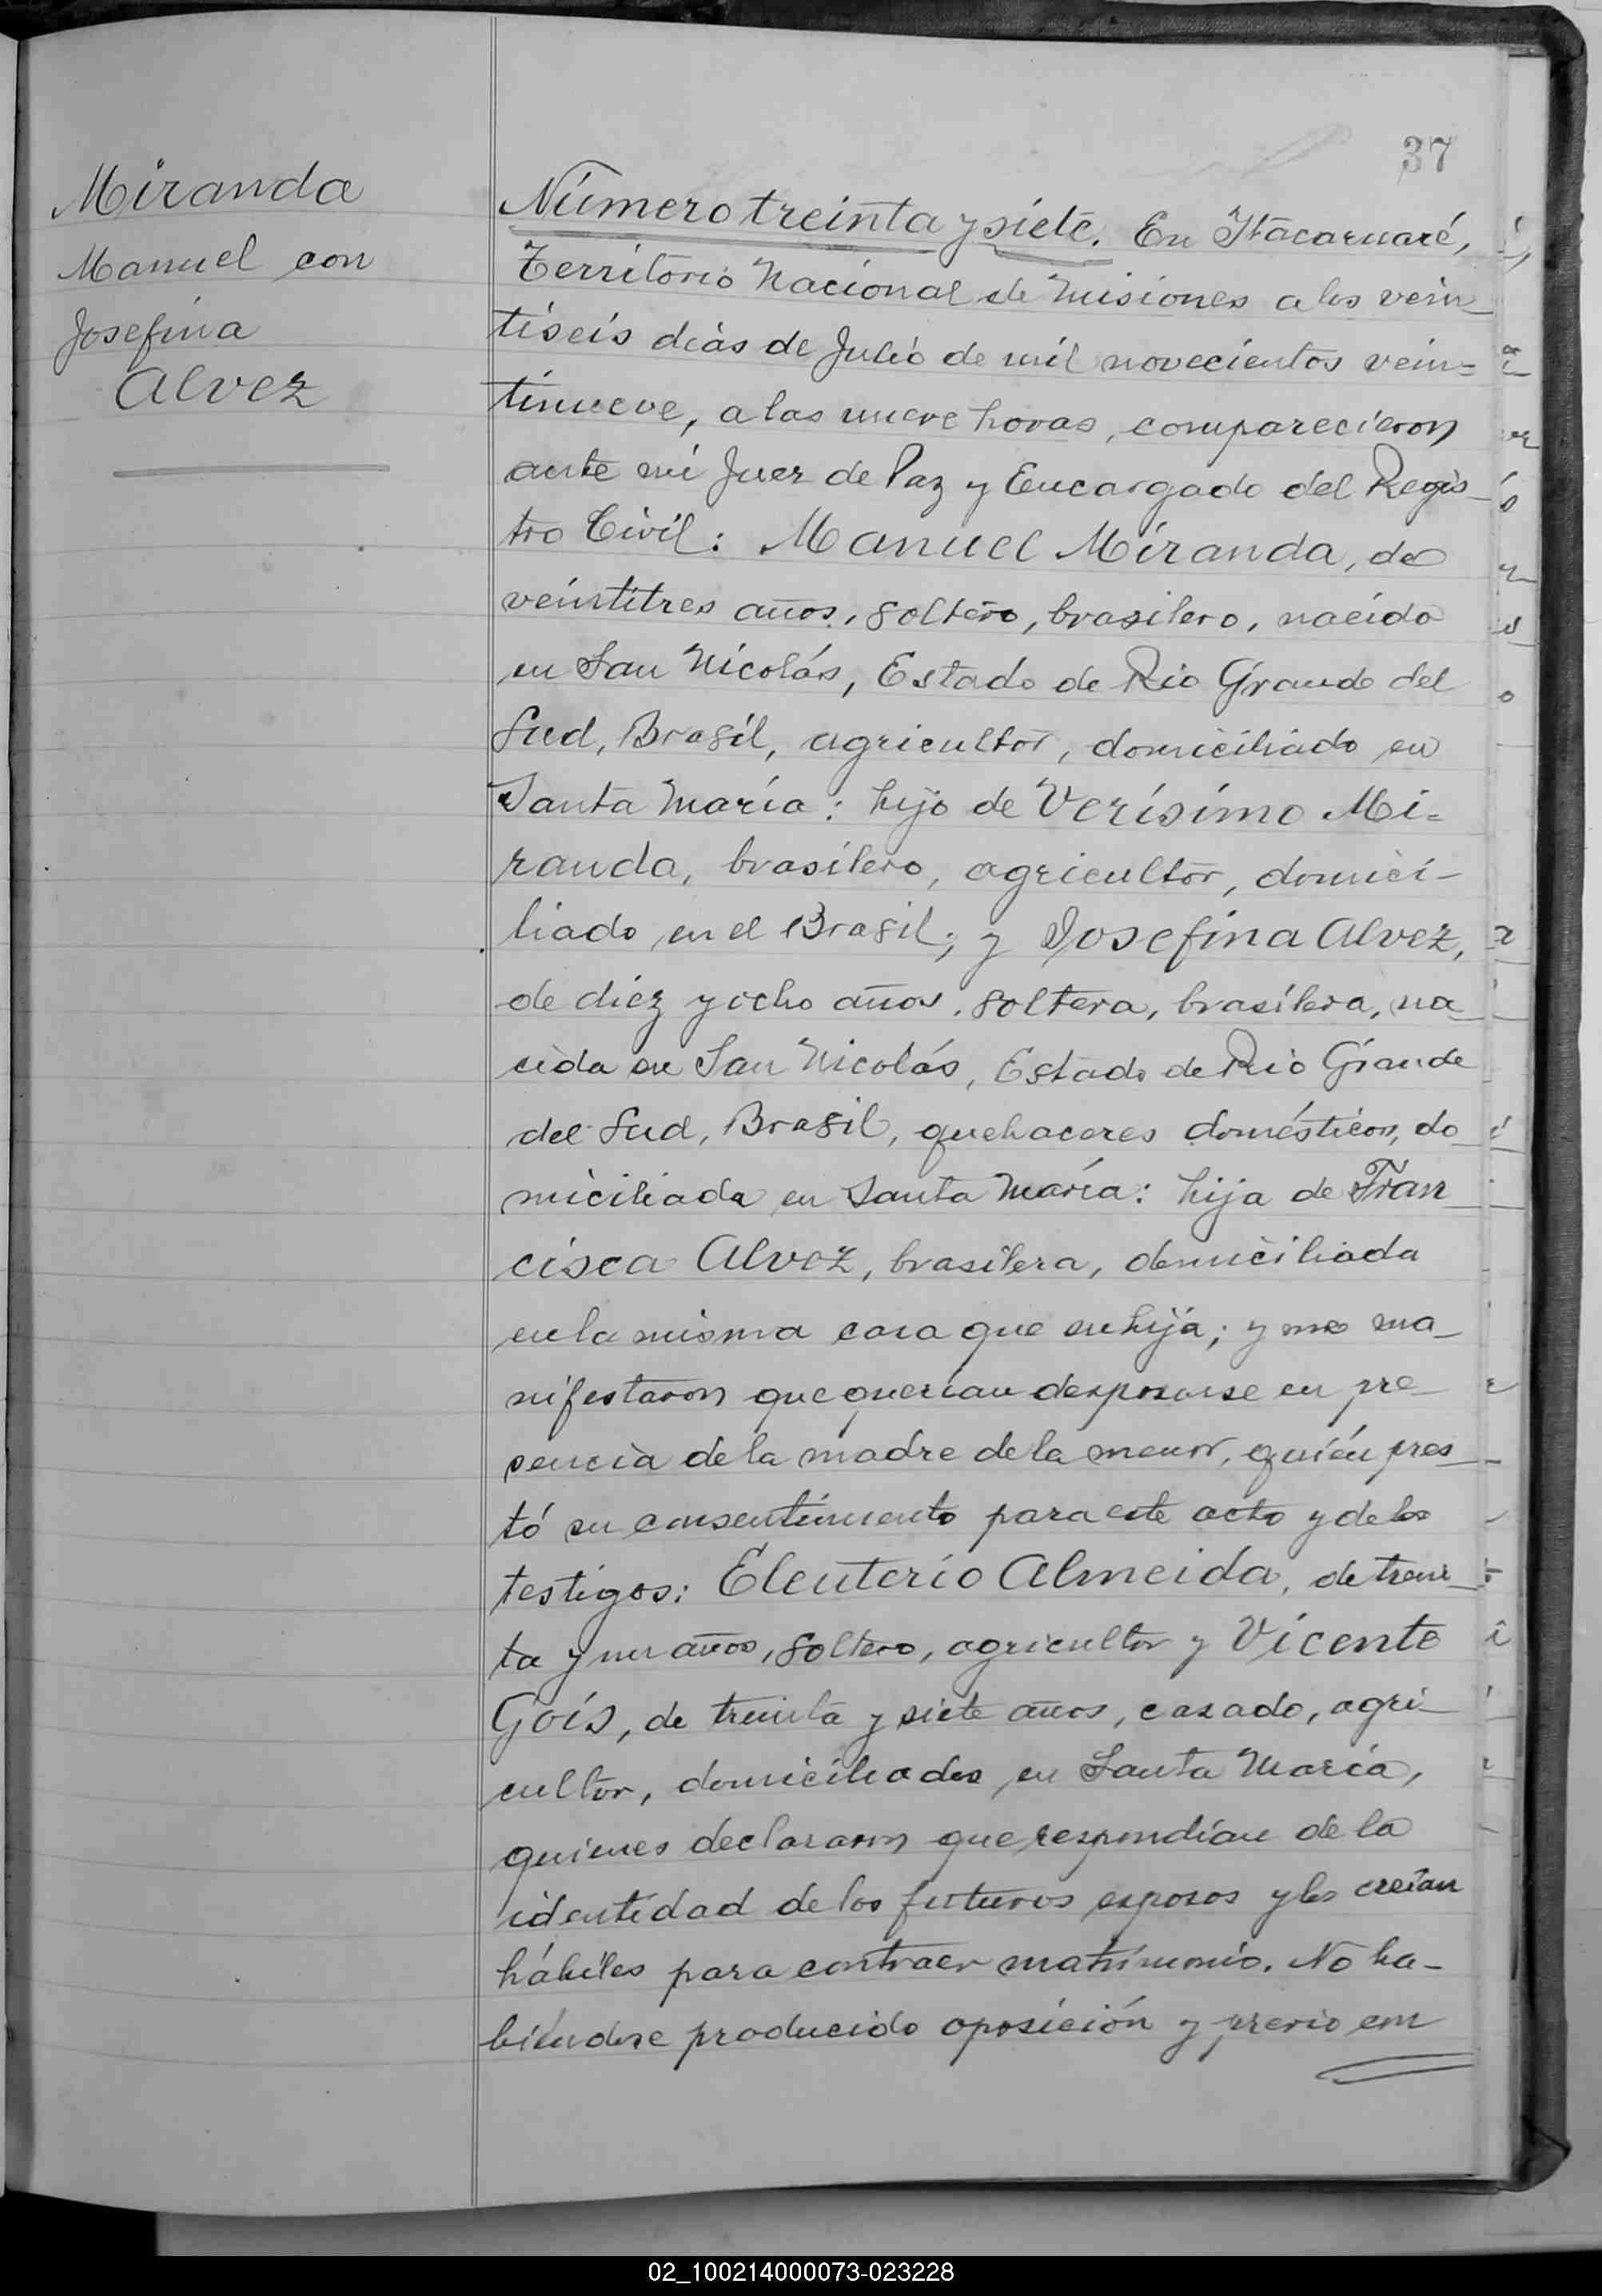 37
Miranda
Manuel con
Josefina
Alvez
Número treinta y siete. En Itacaruaré,
Territorio Nacional de Misiones a los vein_
tiseis dias de Julio de mil novecientos vein=
tinueve, a las nueve horas, comparecieron
ante mi Juez de Paz y Encargado del Regis_
tro Civil: Manuel Miranda, de
veintitres años, soltero, brasilero, nacido
en San Nicolás, Estado de Rio Grande del
Sud, Brasil, agricultor, domiciliado en
Santa María: hijo de Verísimo Mi=
randa, brasilero, agricultor, domici-
liado en el Brasil; y Josefina Alvez,
de diez y ocho años, soltera, brasilera, na_
cida en San Nicolás, Estado de Rio Grande
del Sud, Brasil, quehaceres domésticos, do_
miciliada en Santa María: hija de Fran_
cisca Alvez, brasilera, domiciliada
en la misma casa que su hija; y me ma_
nifestaron que querían desposarse en pre_
sencia de la madre de la menor, quién pres_
tó su consentimiento para este acto y de los
testigos: Eleuterio Almeida, de trein_
ta y un años, soltero, agricultor y Vicente
Gois, de treinta y siete años, casado, agri_
cultor, domiciliados en Santa María,
quienes declararon que respondían de la
identidad de los futuros esposos y los creían
hábiles para contraer matrimonio. No ha-
biéndose producido oposición y previo con
02_100214000073-023228